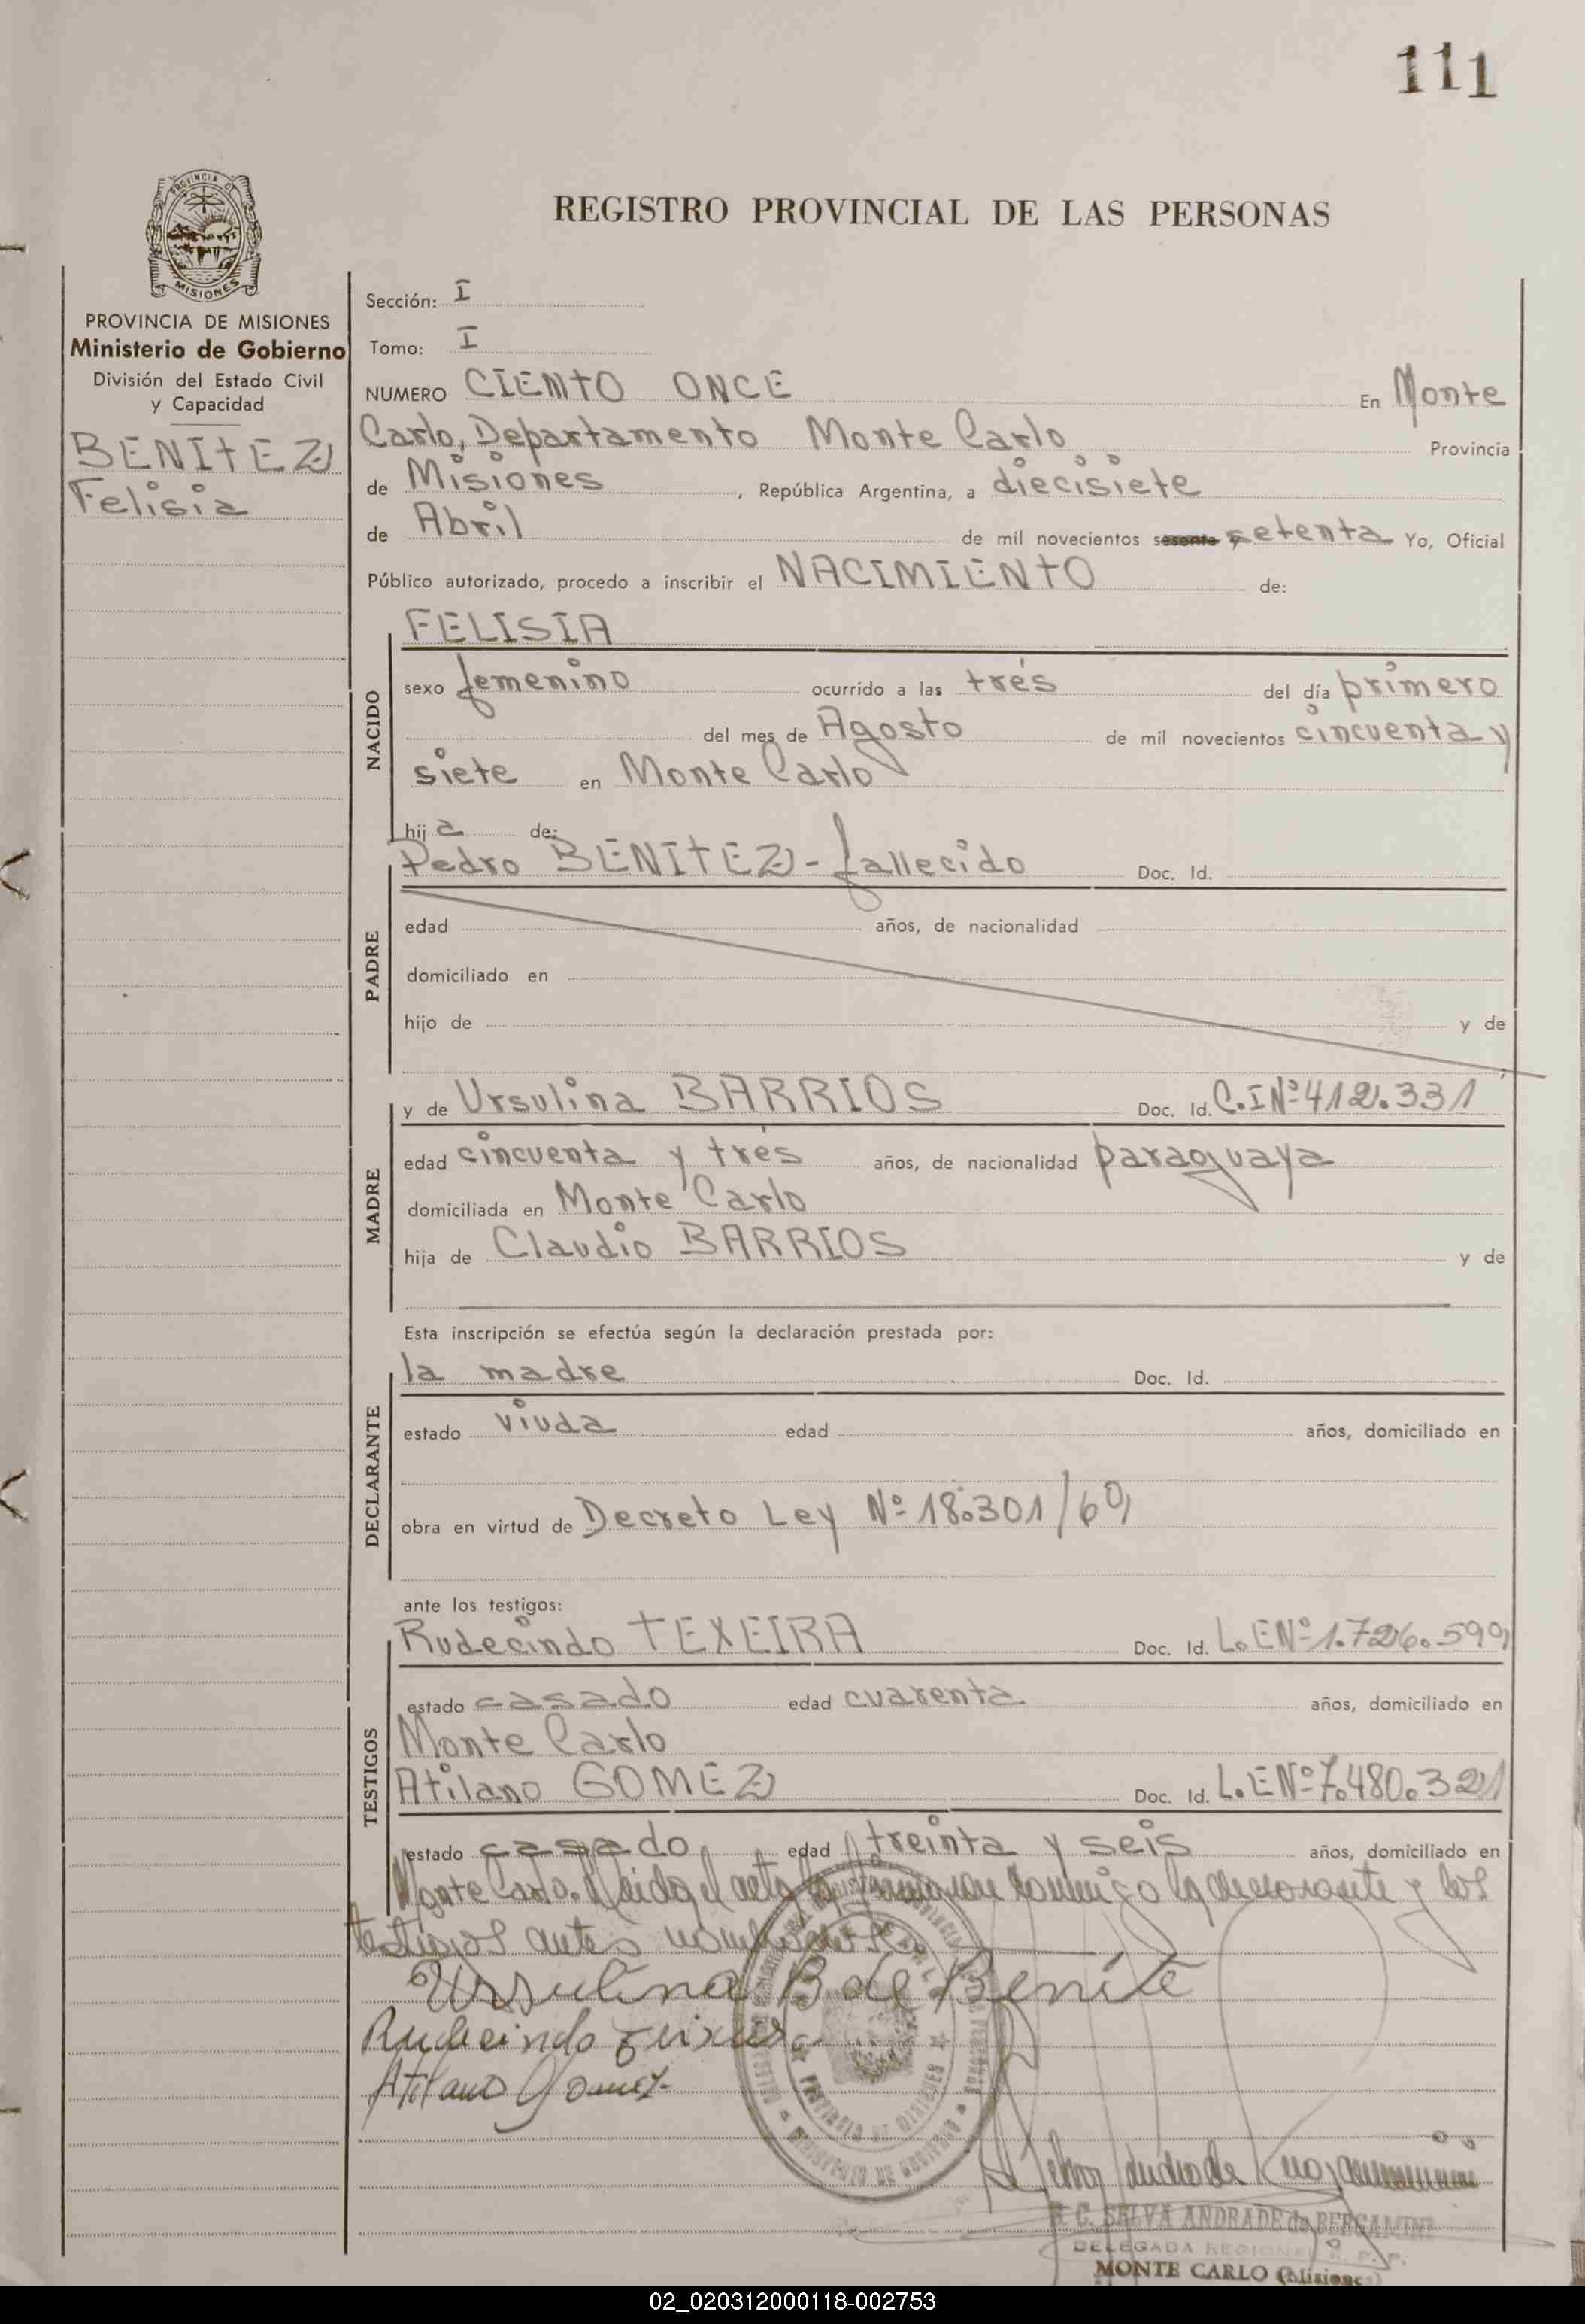 111
REGISTRO PROVINCIAL DE LAS PERSONAS
PROVINCIA DE
MISIONES
PROVINCIA DE MISIONES
Ministerio de Gobierno
División del Estado Civil
y Capacidad
BENITEZ
Felisia
Sección: I
Tomo: I
NUMERO CIENTO ONCE En Monte
Carlo, Departamento Monte Carlo Provincia
de Misiones, República Argentina, a diecisiete
de Abril de mil novecientos setenta Yo, Oficial
Público autorizado, procedo a inscribir el NACIMIENTO de:
NACIDO
FELISIA
sexo femenino ocurrido a las trés del día primero
del mes de Agosto de mil novecientos cincuenta y
siete en Monte Carlo
hija de:
PADRE
Pedro BENITEZ - fallecido Doc. Id.
edad años, de nacionalidad
domiciliado en
hijo de y de
MADRE
y de Ursulina BARRIOS Doc. Id. C.I Nº 412.331
edad cincuenta y trés años, de nacionalidad paraguaya
domiciliada en Monte Carlo
hija de Claudio BARRIOS y de
Esta inscripción se efectúa según la declaración prestada por:
DECLARANTE
la madre Doc. Id.
estado viuda edad años, domiciliado en
obra en virtud de Decreto Ley Nº 18.301/69
ante los testigos:
TESTIGOS
Rudecindo TEXEIRA Doc. Id. L.E Nº 1.726.599
estado casado edad cuarenta años, domiciliado en
Monte Carlo
Atilano GOMEZ Doc. Id. L.E Nº 7.480.321
estado casado edad treinta y seis años, domiciliado en
Monte Carlo. Leida el acta la firmaron conmigo la declarante y los
testigos antes nombrados.
Ursulina B de Benite
Rudecindo Teixera
Atilano Gomez
PROVINCIA DE MISIONES
MINISTERIO DE GOBIERNO
C. SELVA ANDRADE de BERGAMINI
DELEGADA REGIONAL R. P. P.
MONTE CARLO (Misiones)
02_020312000118-002753